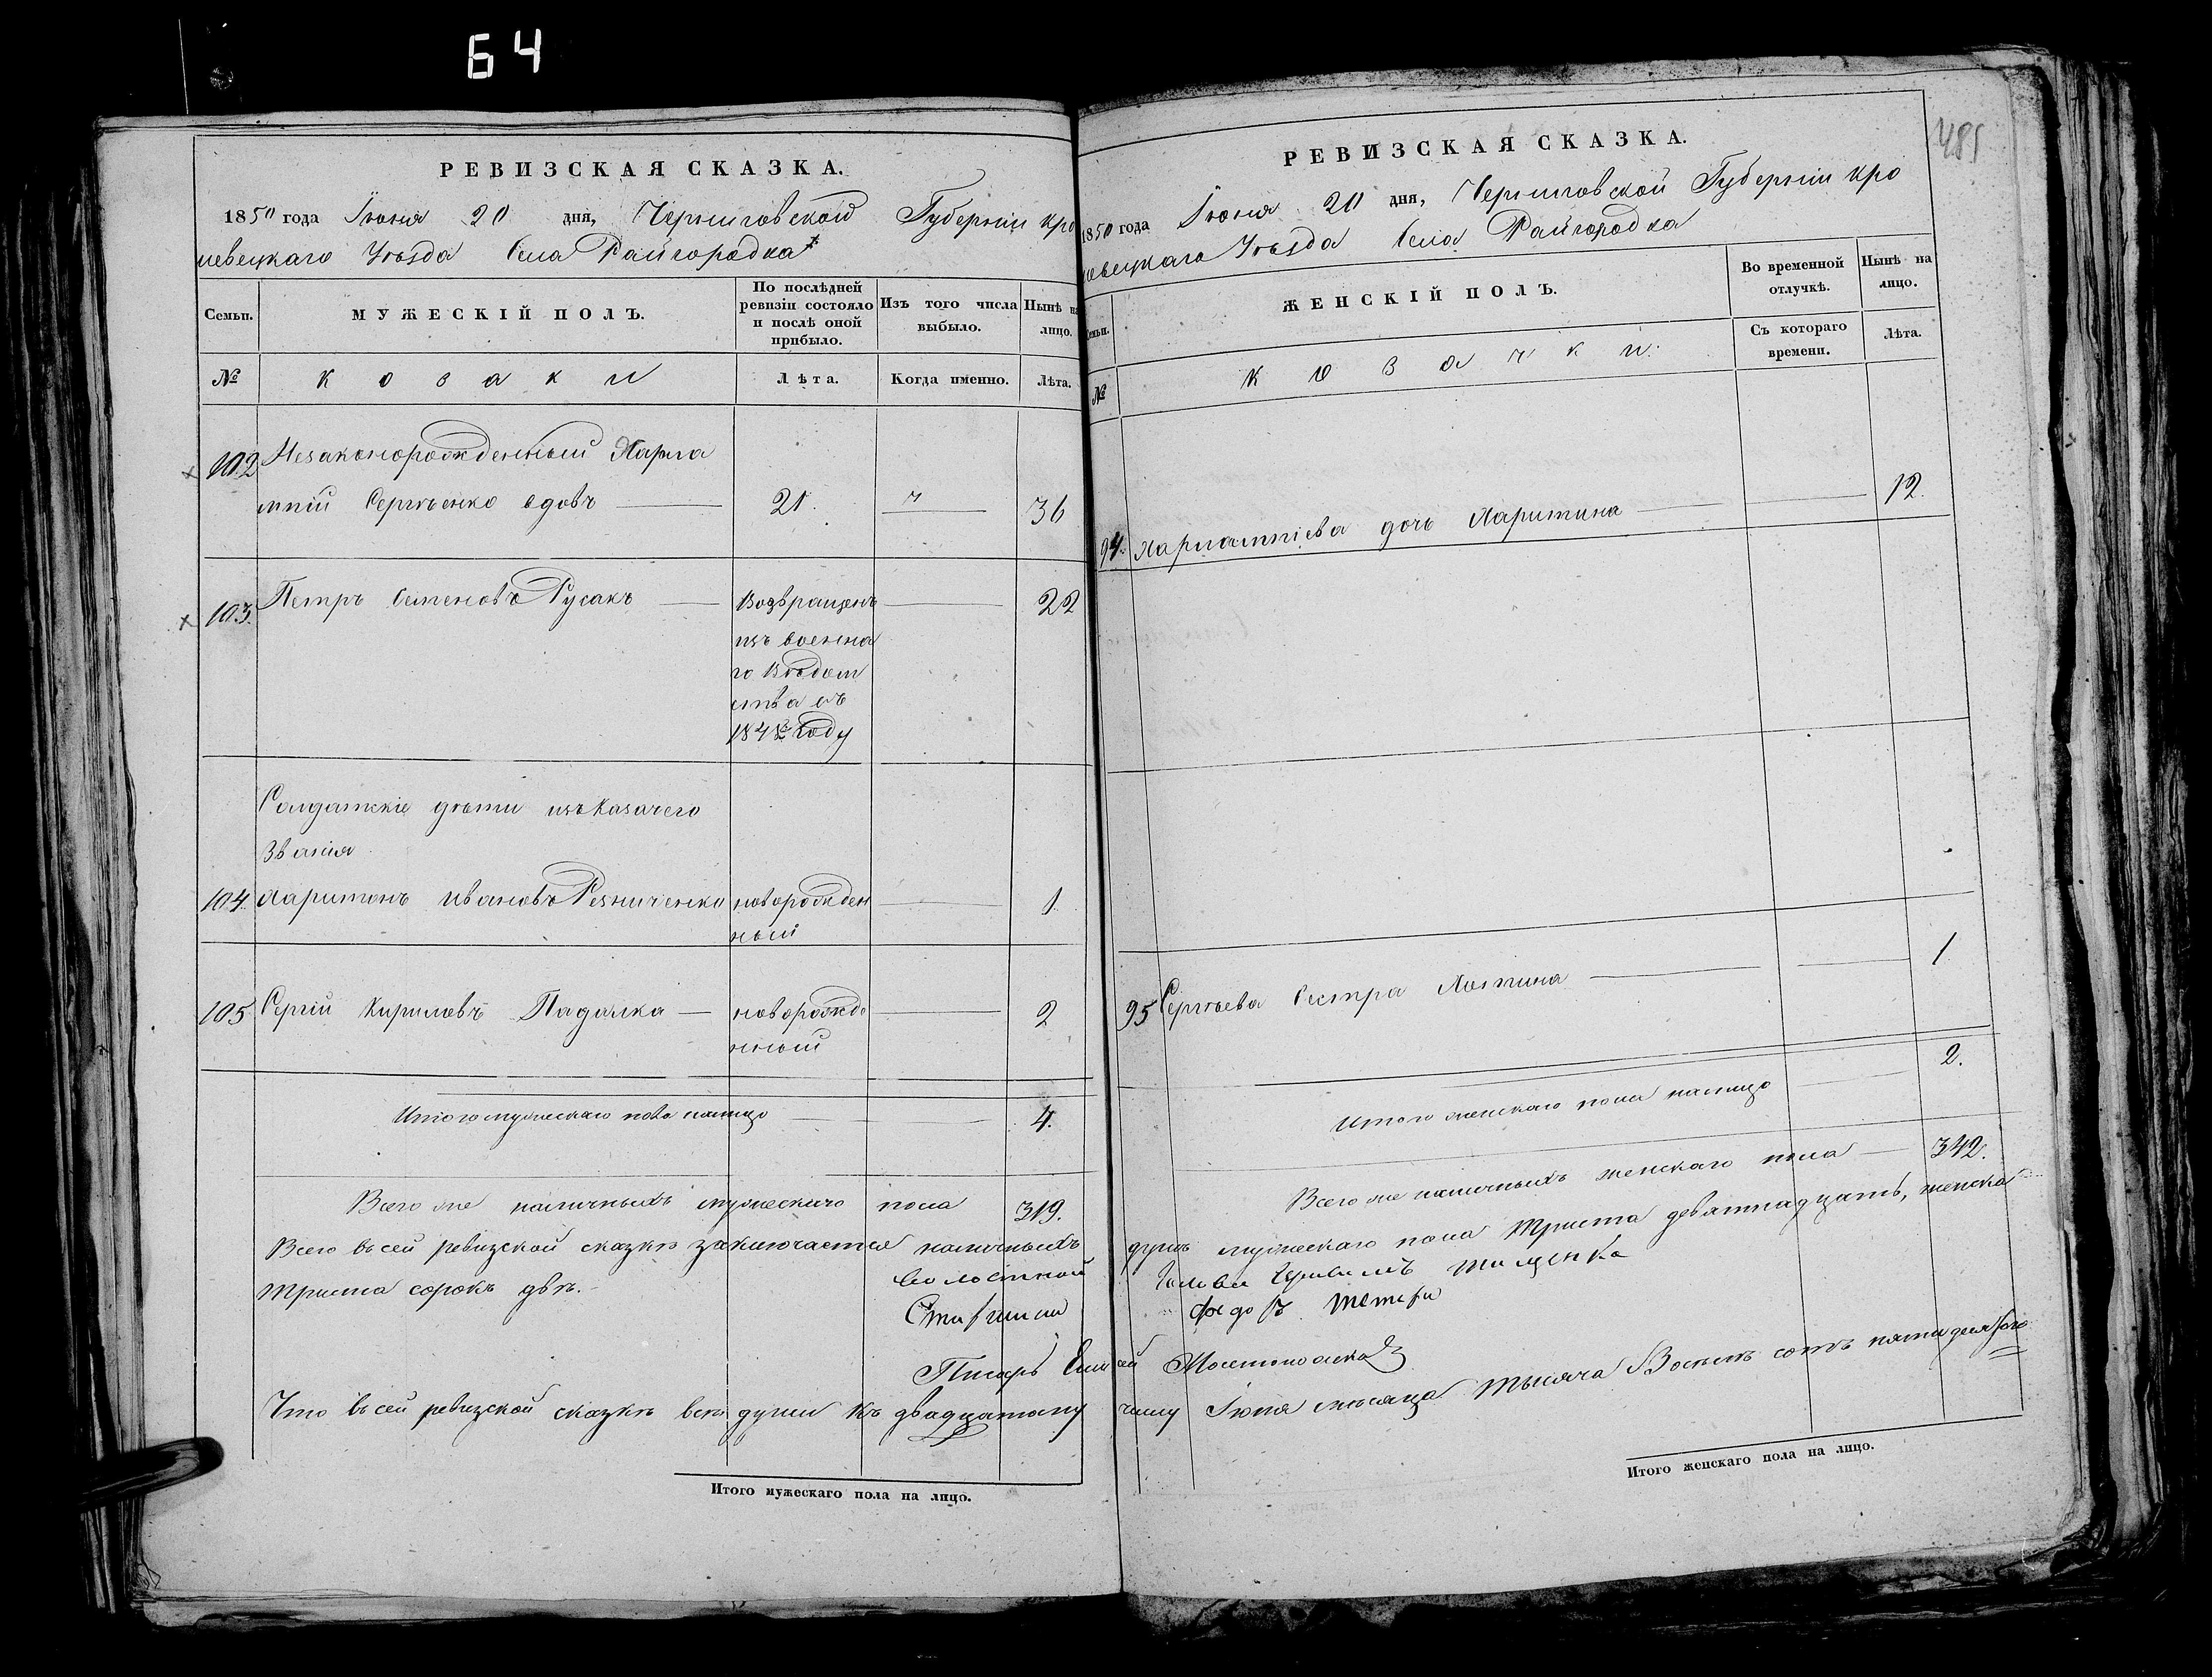 64
РЕВИЗСКАЯ СКАЗКА.
1850 года Іюня 20 дня, Черниговской Губерніи кро
левецкаго Уѣзда Села Райгородка
Семьи.
МУЖЕСКІЙ ПОЛЪ.
По послѣдней ревизіи состояло и послѣ оной прибыло.
Изъ того числа выбыло.
Нынѣ на лицо.
№
козаки
Лѣта.
Когда именно.
Лѣта.
102 Незаконорожденный Харла
мпій Сергѣенко вдовъ 21. 36
103. Петръ Семеновъ Русакъ Возвращенъ 22
изъ военна
го Вѣдом
ства въ
1848 году
Солдатскіе дѣти изъ Казачего
Званія
104 Харитонъ Ивановъ Резниченко новорожден 1
ный
105 Сергій Кириловъ Падалка новорожде 2
нный
Итого мужескаго пола налицо 4.
Всего же наличныхъ мужескаго пола 319.
Всего въ сей ревизской сказкѣ заключается наличныхъ
триста сорокъ двѣ.
Волостной
Писарь
Что въ сей ревизской сказкѣ всѣ души къ двадцатому
Итого мужескаго пола на лицо.
485
РЕВИЗСКАЯ СКАЗКА.
1850 года Іюня 20 дня, Черниговской Губерніи кро
левецкаго Уѣзда Села Райгородка
Семьи.
ЖЕНСКІЙ ПОЛЪ.
Во временной отлучкѣ.
Нынѣ на лицо.
Съ котораго времени.
Лѣта.
№
козачки.
94. Харлампіева дочь Харитина 12.
95 Сергѣева Сестра 1
2.
Итого женскаго пола налицо
Всего же наличныхъ женскаго пола 342.
душъ мужескаго пола триста девятнадцать, женска
Голова Тищенко
Федоръ
числу Іюня мѣсяца тысяча Восемь сотъ пятидесятого
Итого женскаго пола на лицо.